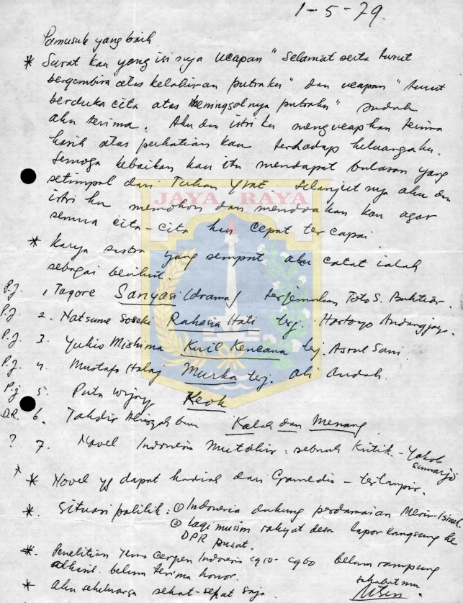 1-5-79.
Pamusuk yang baik
* Surat kau yang isinya ucapan "Selamat serta turut
bergembira atas kelahiran putraku" dan ucapan "turut
berduka cita atas meninggalnya putraku" sudah
aku terima. Aku dan istri ku mengucapkan terima
kasih atas perhatian kau terhadap keluargaku.
Semoga kebaikan kau itu mendapat balasan yang
setimpal dari Tuhan YME. Selanjutnya aku dan
istri ku memohon dan mendoakan kau agar
semua cita-cita kau cepat tercapai.
JAYA RAYA
* Karya sastra yang sempat aku catat ialah
sebagai berikut.
P.J 1. Tagore Sanyasi (drama) terjemahan Toto S. Bakhtiar
P.J 2. Natsume Soseki Rahasia Hati terj. Hartoyo
P.J 3. Yukio Mishima Kuil Kencana terj. Asrul Sani.
P.J 4. Mustapa Halaj Murka terj. Ali Audah.
P.J 5. Putu Wijaya Keok
D.R. 6. Takdir Alisyahbana Kalah dan Menang
? 7. Novel Indonesia Mutakhir: sebuah Kritik - Yakob
Sumarjo
* * Novel yg dapat hadiah dari Gramedia - terlampir.
*. Situasi politik: ① Indonesia dukung perdamaian Mesir-Israel
② lagi musim rakyat desa lapor langsung ke
DPR pusat.
*. Penelitian Cerpen Indonesia 1910-1960 belum rampung
belum terima honor.
* Aku sekeluarga sehat-sehat saja.